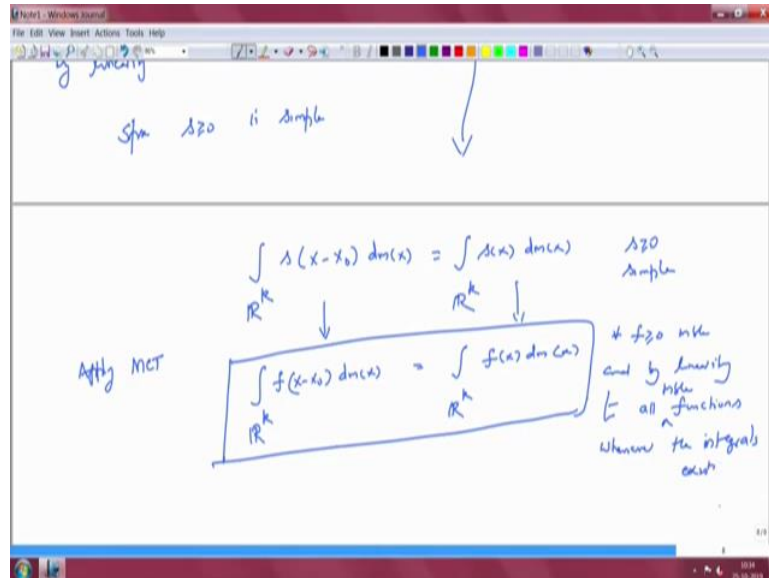 Note1 - Windows Journal
File Edit View Insert Actions Tools Help
by linearity
s≥0 is simple
∫_{ℝ^k} s(x-x₀) dm(x) = ∫_{ℝ^k} s(x) dm(x) s≥0 simple
Apply MCT
∫_{ℝ^k} f(x-x₀) dm(x) = ∫_{ℝ^k} f(x) dm(x)
∀ f≥0 mble
and by linearity
all mble functions
whenever the integrals
exist
8/8
10:34
25-10-2018